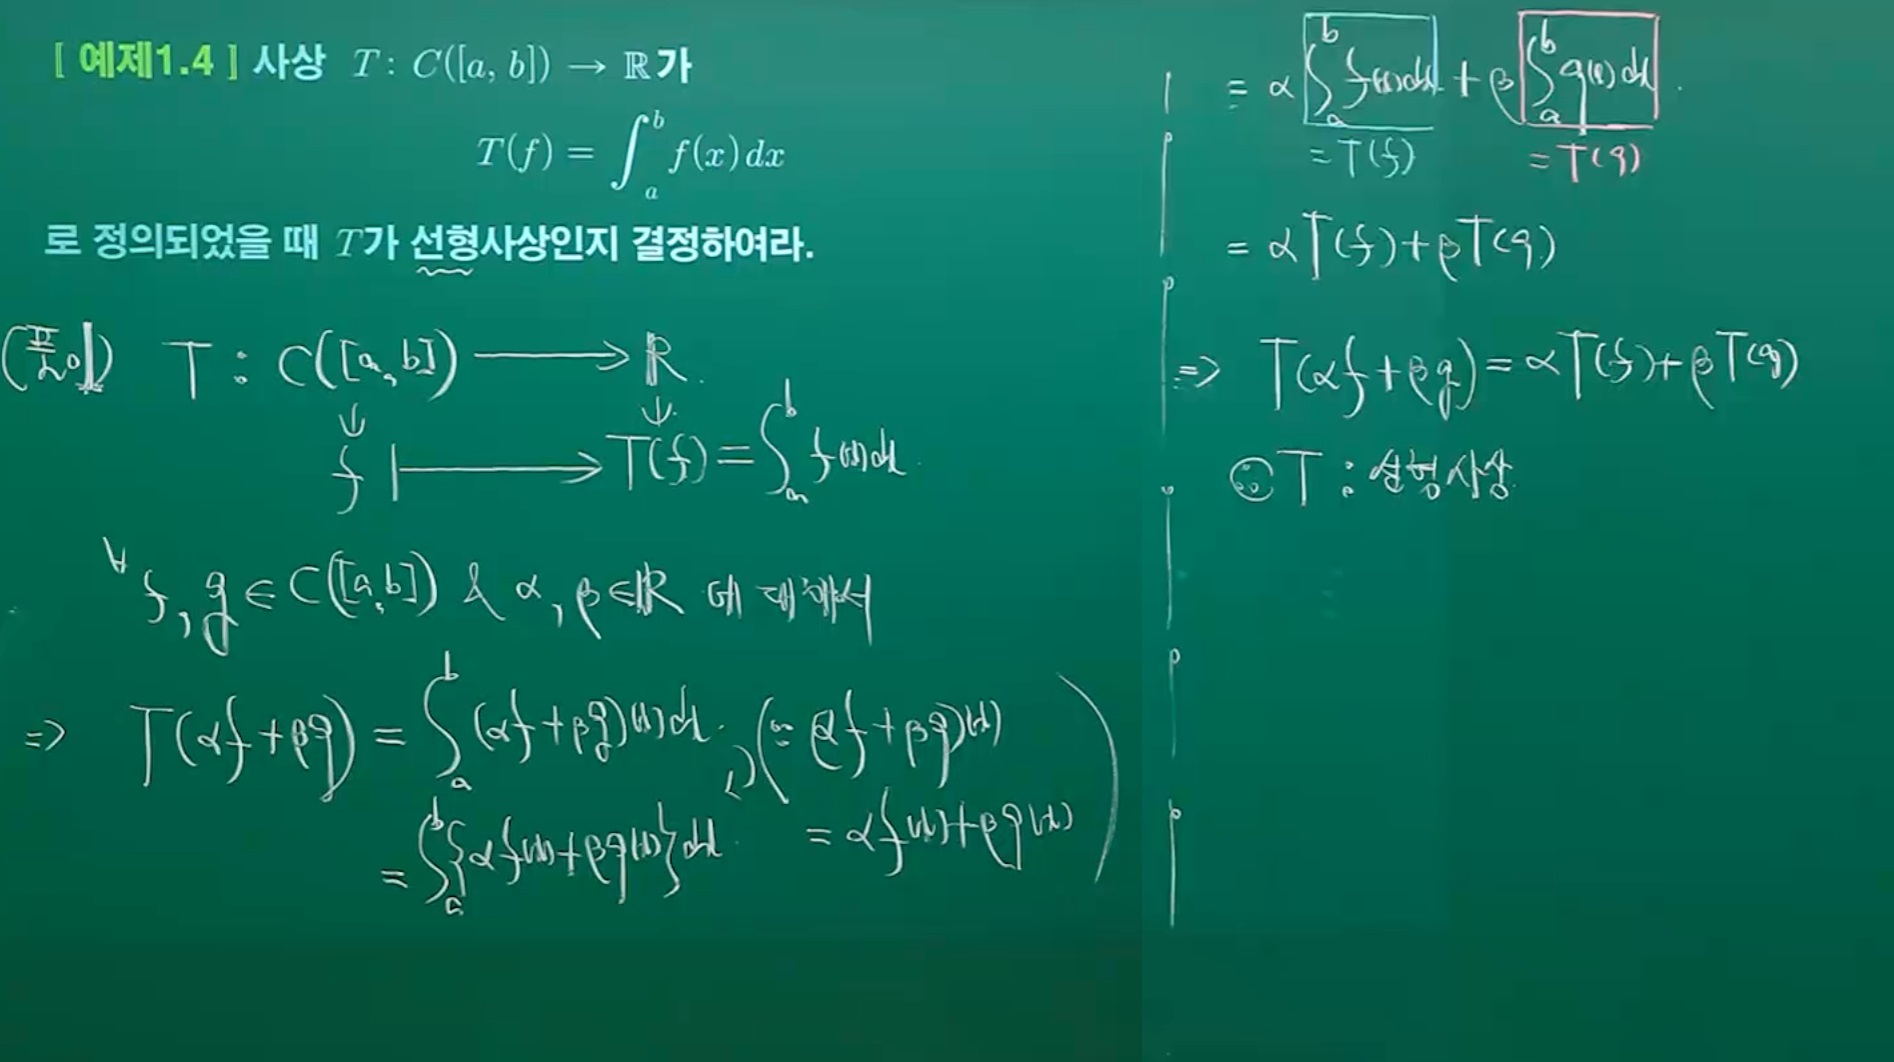 [ 예제1.4 ] 사상 T : C([a, b]) → ℝ가
T(f) = ∫_a^b f(x) dx
로 정의되었을 때 T가 선형사상인지 결정하여라.
(풀이) T : C([a, b]) ⟶ ℝ.
↓ ↓
f ⟼ T(f) = ∫_a^b f(x)dx.
∀f, g ∈ C([a, b]) & α, β ∈ ℝ 에 대해서
⇒ T(αf + βg) = ∫_a^b (αf + βg)(x)dx. (∵ (αf + βg)(x)
= ∫_a^b {αf(x) + βg(x)}dx. = αf(x) + βg(x))
= α ∫_a^b f(x)dx + β ∫_a^b g(x)dx.
= T(f) = T(g)
= αT(f) + βT(g)
⇒ T(αf + βg) = αT(f) + βT(g)
∴ T : 선형사상.